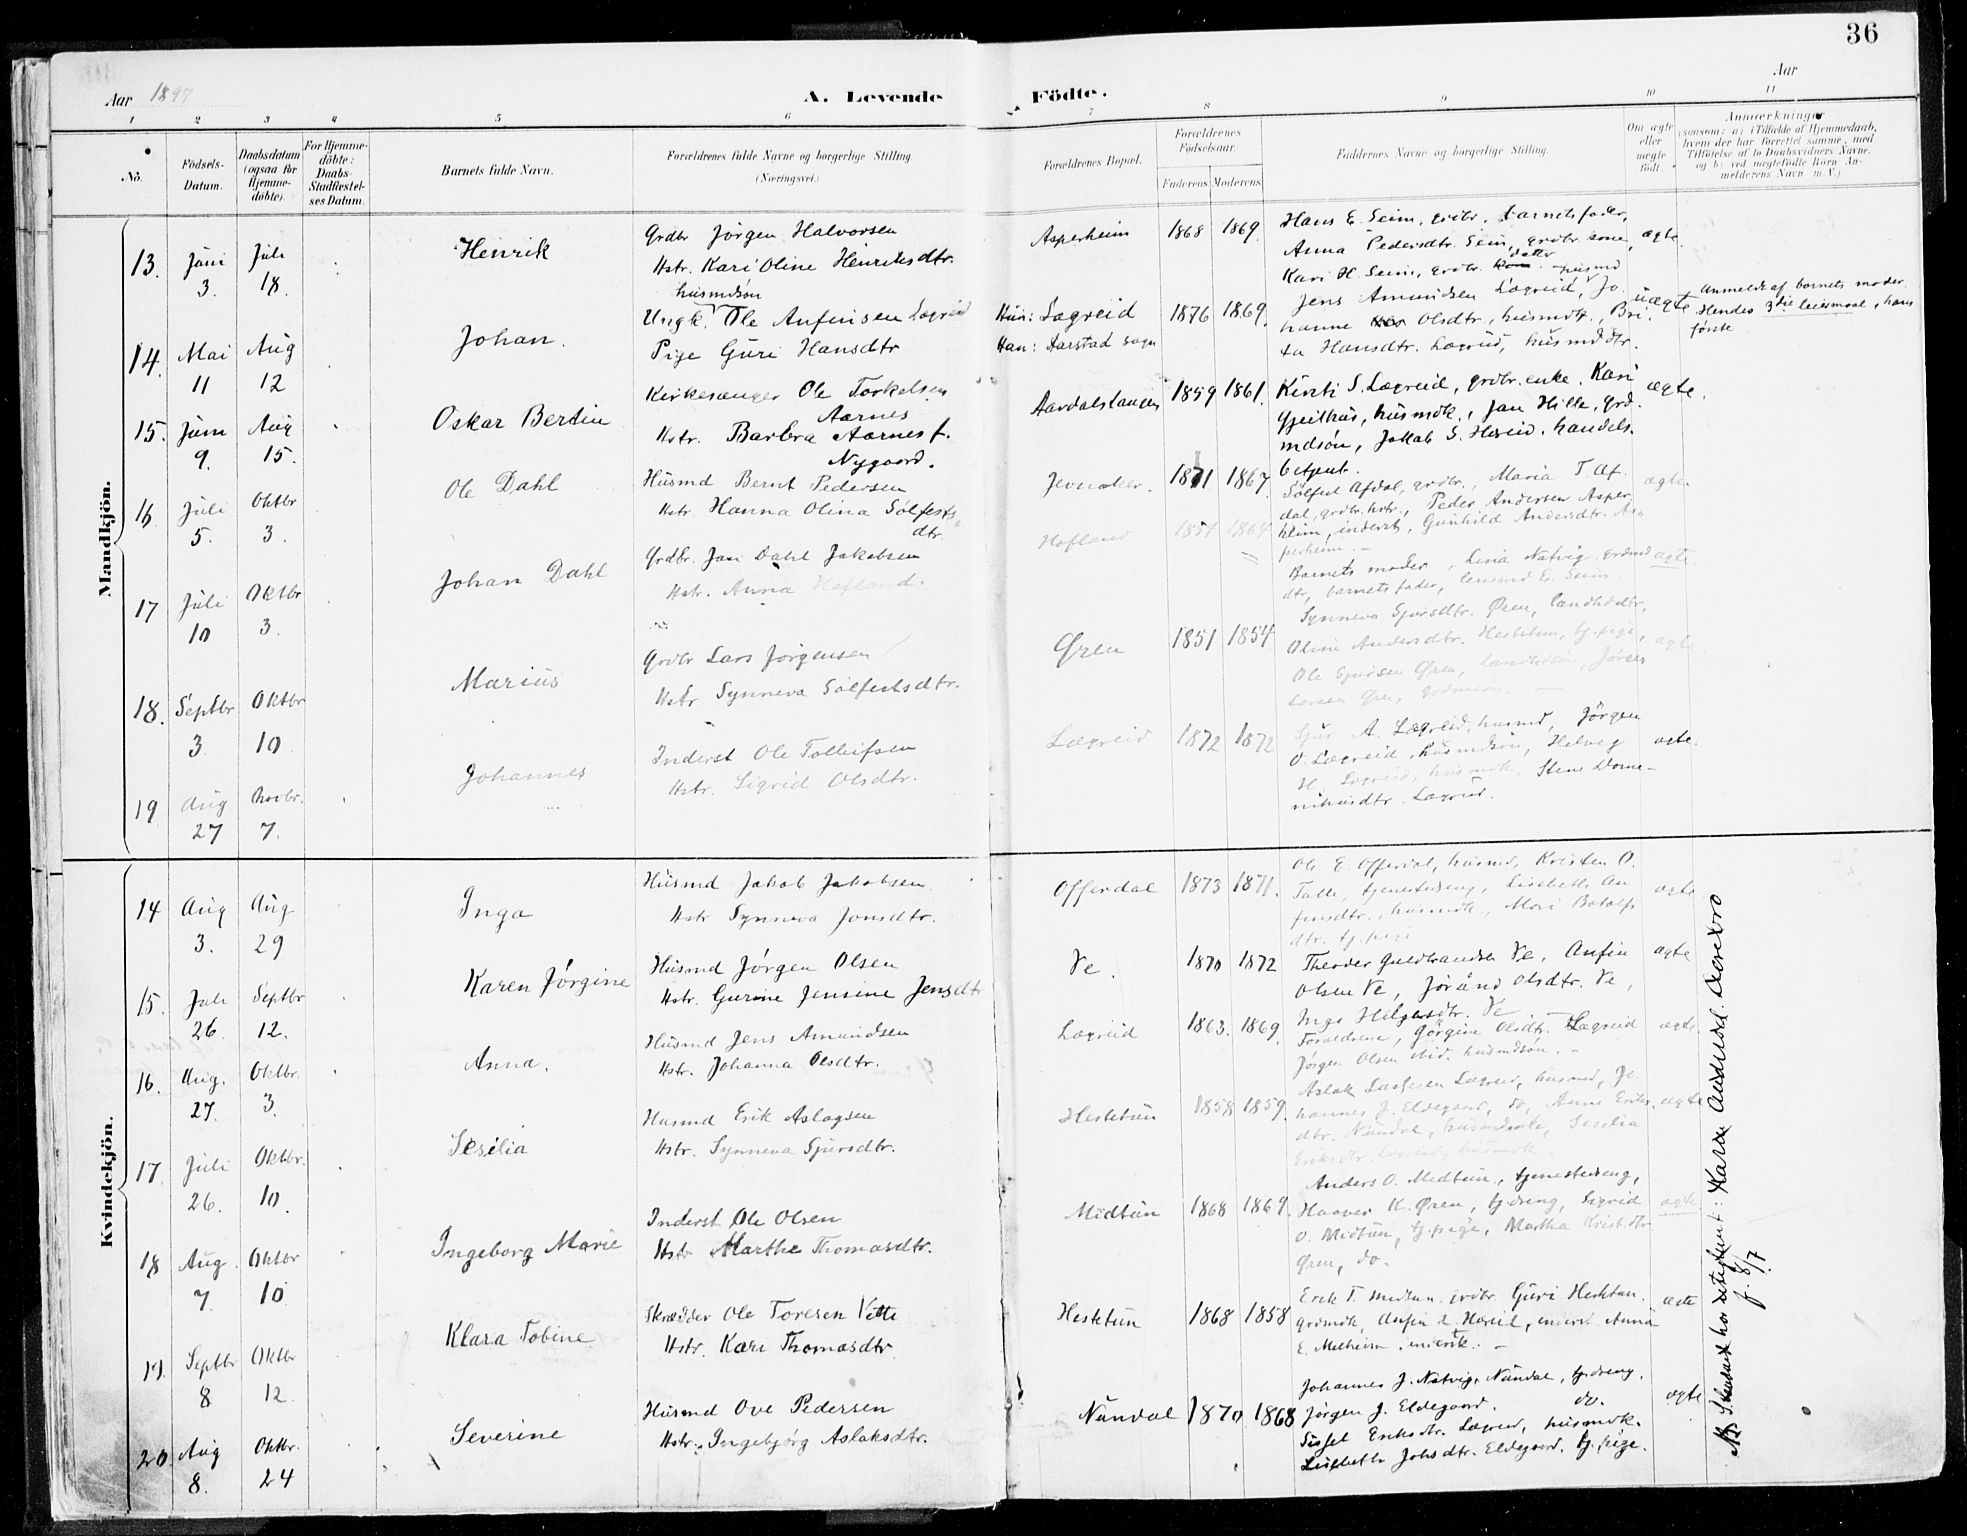 36
Aar 1897
A. Levende Födte.
Aar
1 2 3 4 5 6 7 8 9 10 11
No.
Födsels-Datum.
Daabsdatum (ogsaa for Hjemmedöbte).
For Hjemmedöbte: Daabs-Stadfæstelses Datum.
Barnets fulde Navn.
Forældrenes fulde Navne og borgerlige Stilling. (Næringsvei.)
Forældrenes Bopæl.
Forældrenes Födselsaar.
Faderens Moderens
Faddernes Navne og borgerlige Stilling.
Om ægte eller uægte födt.
Anmærkninger
(saasom: a) i Tilfælde af Hjemmedaab,
hvem der har forrettet samme, med
Tilföielse af to Daabsvidners Navne.
og b) ved uægtefödte Börn An-
melderens Navn m. V.)
Mandkjön.
13. Juni 3. Juli 18. Henrik
Grdbr Jörgen Halvorsen
Hstr. Kari Oline Henriksdtr.
Asperheim 1868 1869
Hans E. Seim, grdbr, barnets fader,
Anna Pedersdtr. Seim, grdbr. kone,
Kari H. Seim, grdbr. datter
ægte
14. Mai 11 Aug 12 Johan.
husmdsön
Ungk. Ole Anfinsen Lægreid
Pige Guri Hansdtr
Hun: Lægreid
Han: Aarstad sogn
1876 1869.
Jens Amundsen Lægreid, husmd, Jo-
hanne Olsdtr, husmdk, Bri-
ta Hansdtr. Lægreid, husmdsdtr.
uægte
Anmeldt af barnets moder.
Hendes 3die leiermaal, hans
förste
15. Juni 9. Aug 15. Oskar Bertin
Kirkesanger Ole Torkelsen
Aarnes
Hstr. Barbra Aarnes f.
Nygaard.
Aardalstangen 1859 1861.
Kirsti S. Lægreid, grdbr. enke, Kari
Gjeithus, husmdk., Jan Hille, grd-
mdsön, Jakob S. Hereid, handels-
betjent.
ægte
16 Juli 5. Oktbr 3. Ole Dahl
Husmd Bernt Pedersen
Hstr. Hanna Olina Sölfests-
dtr.
Jevnaker. 1871 1867.
Sölfest Afdal, grdbr., Maria T. Af-
dal, grdbr. hstr., Peder Andersen Asper-
heim, inderst, Gunhild Andersdtr. As-
perheim. –
ægte
17 Juli 10 Oktbr 3. Johan Dahl
Grdbr. Jan Dahl Jakobsen
Hstr. Anna Hofland.
Hofland 1854 1864
Barnets moder, Lina Natvig, grdmd-
dtr, barnets fader, lensmd E. Seim
ægte.
18. Septbr 3. Oktbr 10 Marius
Grdbr Lars Jörgensen
Hstr. Synneva Sölfestsdtr.
Øren 1851 1854
Synneva Sjursdtr. Øren, landhdsdtr,
Oline Andersdtr. Hestetun, tj.pige,
Ole Sjursen Øren, landhdsön, Jörgen
Larsen Øren, grdmdsön. –
ægte
19 Aug 27 Novbr. 7. Johannes
Inderst Ole Tolleifsen
Hstr. Sigrid Olsdtr.
Lægreid 1872 1872
Sjur A. Lægreid, husmd, Jörgen
O. Lægreid, husmdsön, Helvig
H. Lægreid, husmdk, Stine Dome-
nikusdtr. Lægreid.
ægte.
Kvindekjön.
14 Aug 3. Aug 29 Inga
Husmd Jakob Jakobsen
Hstr Synneva Jonsdtr.
Offerdal 1873 1871.
Ole E. Offerdal, husmd, Kristen O.
Talle, tjenestedreng, Lisebeth An-
finsdtr., husmdk, Mari Botolfs-
dtr. tj.pige
ægte
15. Juli 26 Septbr 12. Karen Jörgine
Husmd Jörgen Olsen
Hstr. Gurine Jensine Jensdtr
Ve. 1870 1872
Theodor Guldbrandsen Ve, Anfin
Olsen Ve, Jörånd Olsdtr. Ve,
Inga Helgesdtr. Ve
ægte
16. Aug. 27. Oktbr. 3. Anna.
Husmd Jens Amundsen
Hstr. Johanna Olsdtr.
Lægreid 1863. 1869.
Forældrene, Jörgine Olsdtr. Lægreid
Jörgen Olsen ibid. husmdsön. –
ægte
17. Juli 26. Oktbr. 10. Sesilia
Husmd Erik Aslagsen
Hstr. Synneva Sjursdtr.
Hestetun 1858 1859.
Aslak Lassesen Lægreid, husmd, Jo-
hannes J. Eldegaard, do, Anne Eriks-
dtr. Nundal, husmdenke, Sesilia
Eriksdtr. Lægreid, husmdk.
ægte
18 Aug 7 Oktbr 10 Ingeborg Marie
Inderst Ole Olsen
Hstr Marthe Thomasdtr.
Midtun 1868 1869.
Anders O. Midtun, tjenestedreng,
Haaver K. Øren, tj.dreng, Sigrid
O. Midtun, tj.pige, Martha Krist.dtr
Øren, do.
ægte
19. Septbr 8 Oktbr 12 Klara Tobine
Skrædder Ole Toresen Vette
Hstr. Kari Thomasdtr.
Hestetun 1868 1858
Erik T. Midtun, grdbr. Guri Hestetun,
grdmdk, Anfin L. Hereid, inderst, Anna
E. Melheim, inderstk. –
ægte
20. Aug 8. Oktbr. 24 Severine
Husmd Ove Pedersen
Hstr. Ingebjörg Aslaksdtr.
Nundal 1870 1868
Johannes J. Natvig, Nundal, tj.dreng.
Jörgen J. Eldegaard, do.
Sissel Eriksdtr. Lægreid, husmdk.
Lisebeth Johsdtr. Eldegaard, tj.pige.
ægte
Karen Andersd.
f. 8/7